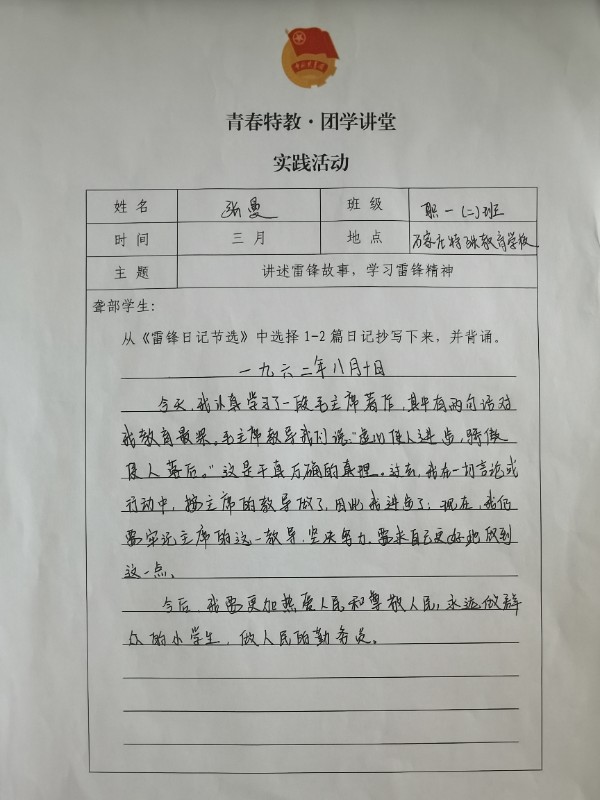 青春特教·团学讲堂
实践活动
姓名 张曼 班级 职一(二)班
时间 三月 地点 石家庄特殊教育学校
主题 讲述雷锋故事,学习雷锋精神
聋部学生:
从《雷锋日记节选》中选择1-2篇日记抄写下来,并背诵。
一九六二年八月十日
今天,我认真学习了一段毛主席著作,其中有两句话对
我教育最深。毛主席教导我们说:"虚心使人进步,骄傲
使人落后。"这是千真万确的真理。过去,我在一切言论或
行动中,按主席的教导做了,因此我进步了;现在,我仍
要牢记主席的这一教导,坚决努力,要求自己更好地做到
这一点。
今后,我要更加热爱人民和尊敬人民,永远做群
众的小学生,做人民的勤务员。